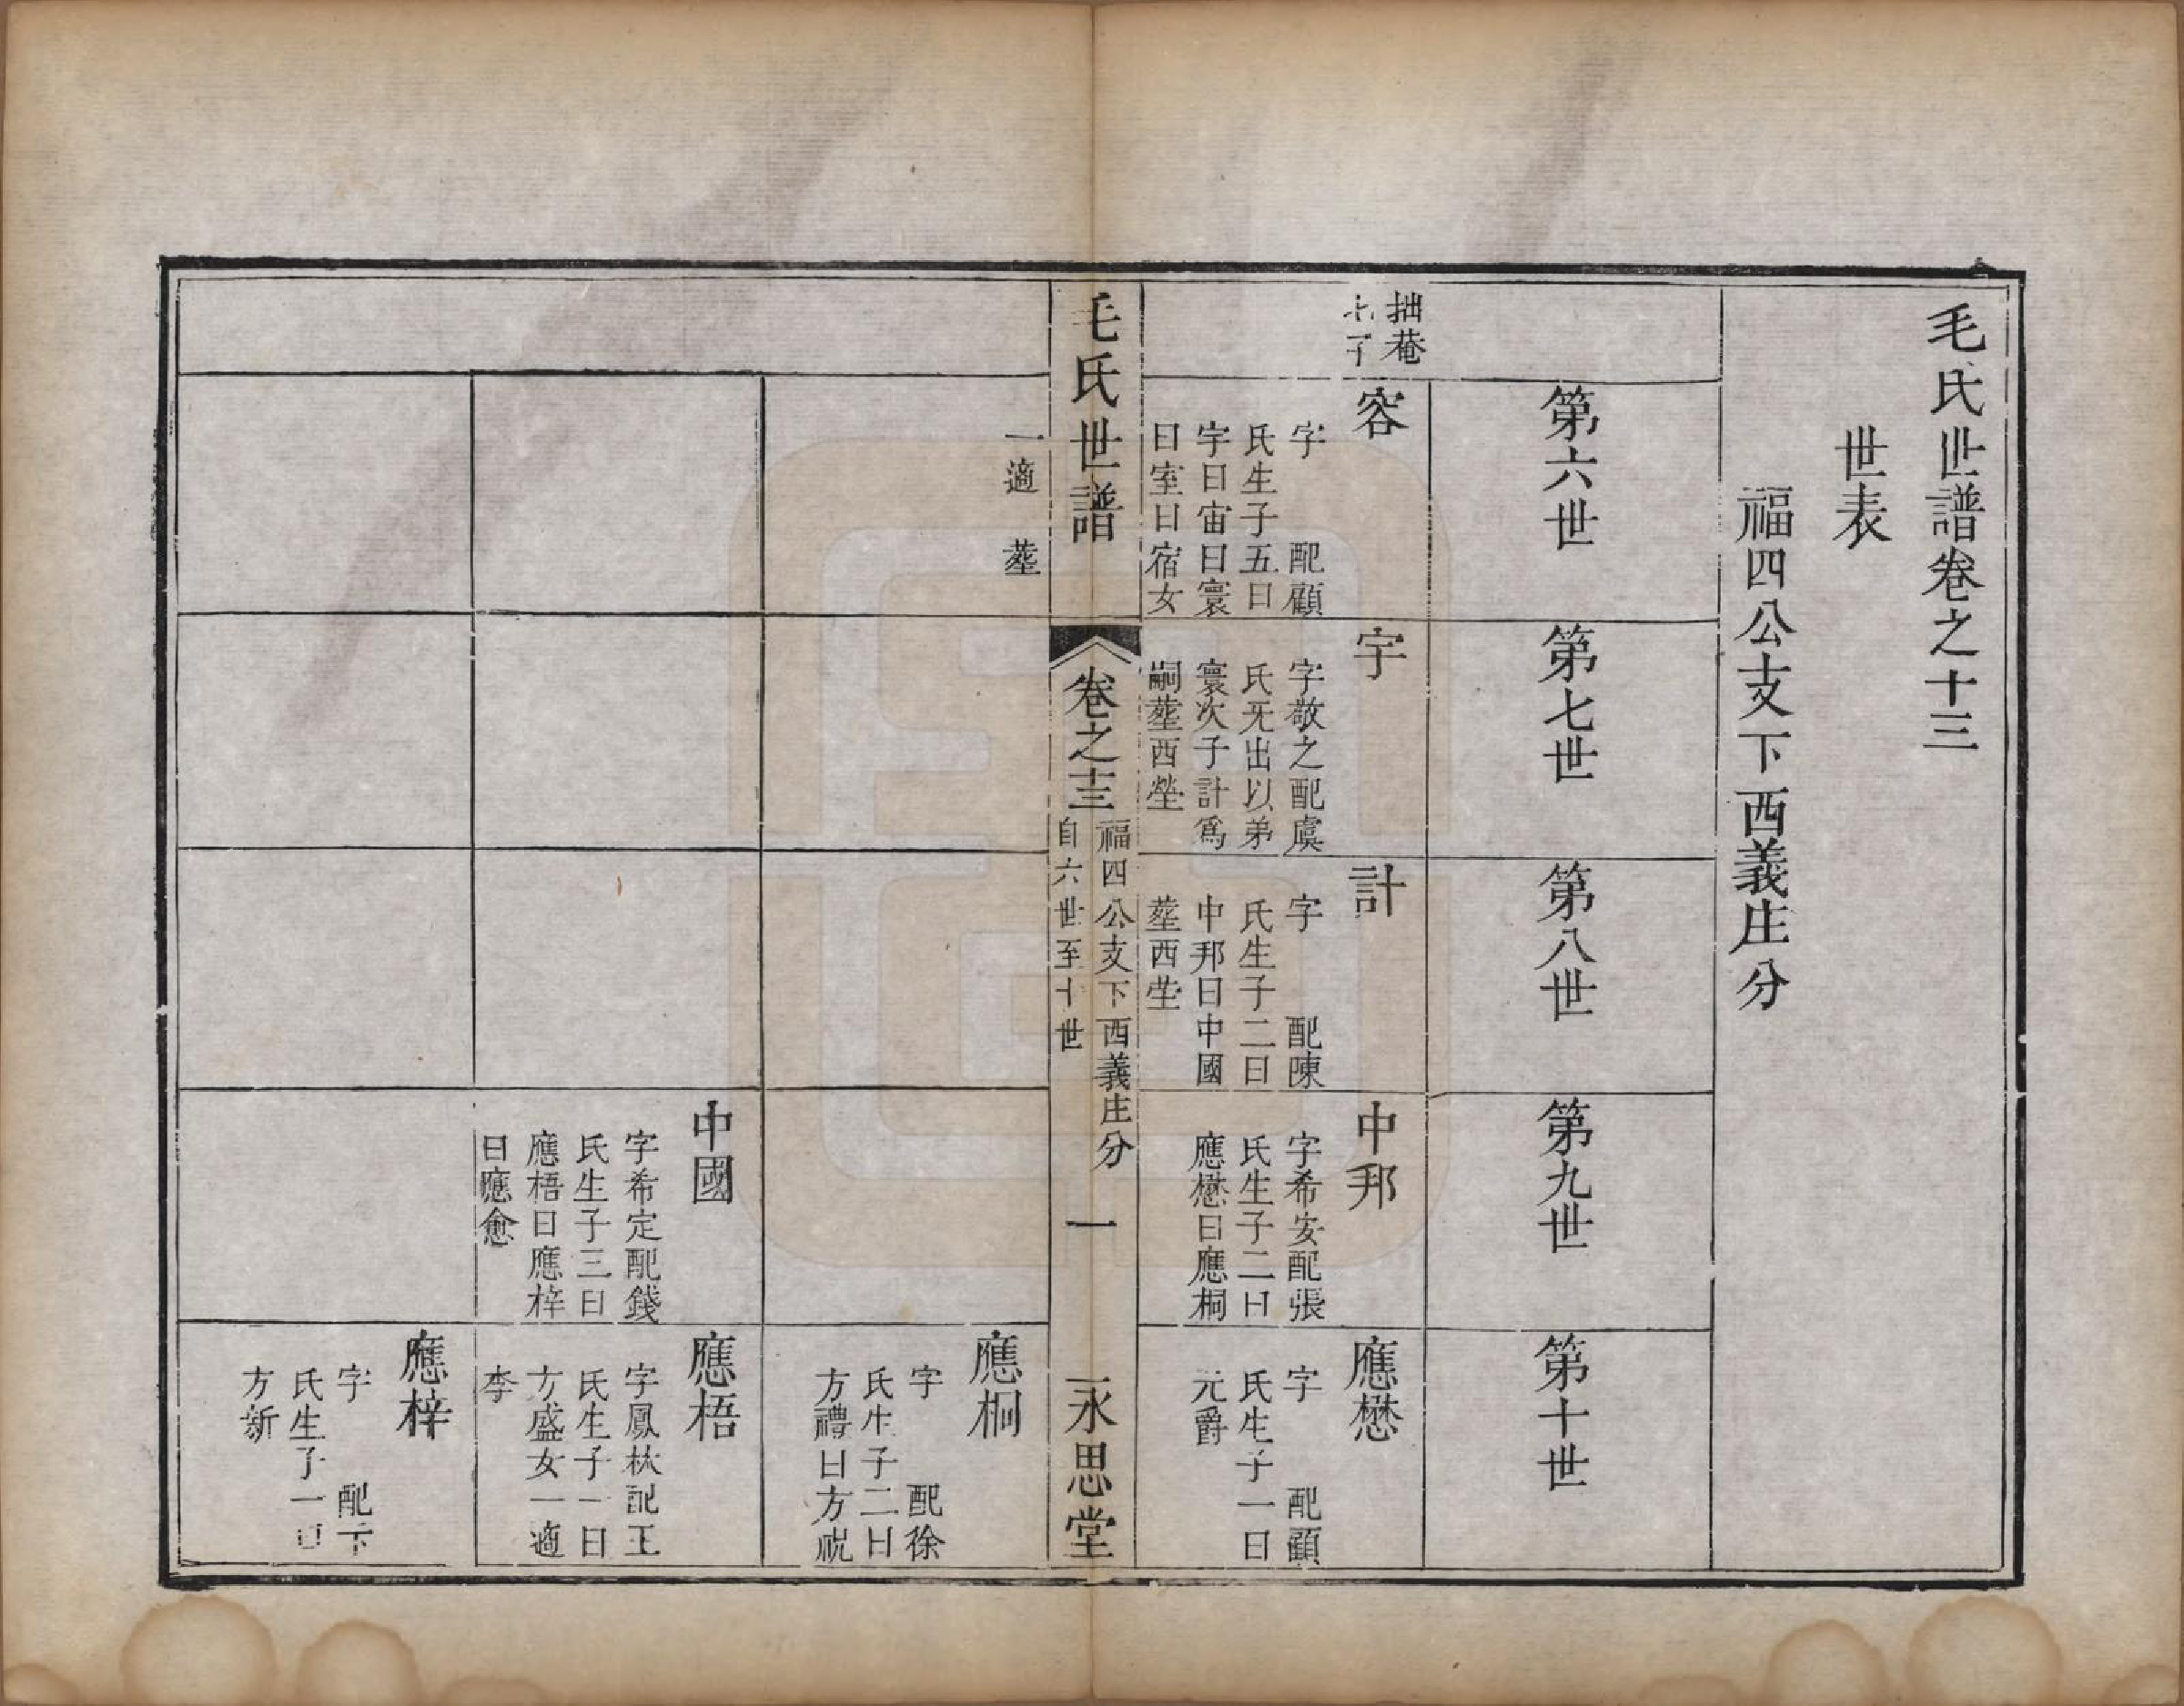 毛氏世譜卷之十三
世表
福四公支下西義庄分
第六世
第七世
第八世
第九世
第十世
拙菴
七子
容
字　配顧
氏生子五曰
宇曰宙曰寰
曰室曰宿女
一適　塟
宇
字敬之配虞
氏无出以弟
寰次子計爲
嗣塟西塋
計
字　配陳
氏生子二曰
中邦曰中國
塟西塋
中邦
字希安配張
氏生子二曰
應懋曰應桐
應懋
字　配顧
氏生子一曰
元爵
毛氏世譜
卷之十三
福四公支下西義庄分
自六世至十世
一
永思堂
應桐
字　配徐
氏生子二曰
方禮曰方祝
中國
字希定配錢
氏生子三曰
應梧曰應梓
曰應愈
應梧
字鳳林配王
氏生子一曰
方盛女一適
李
應梓
字　配卞
氏生子一曰
方新